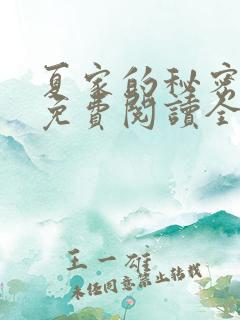 夏家的秘密
免費閱讀全
王一雄
未经同意禁止转载